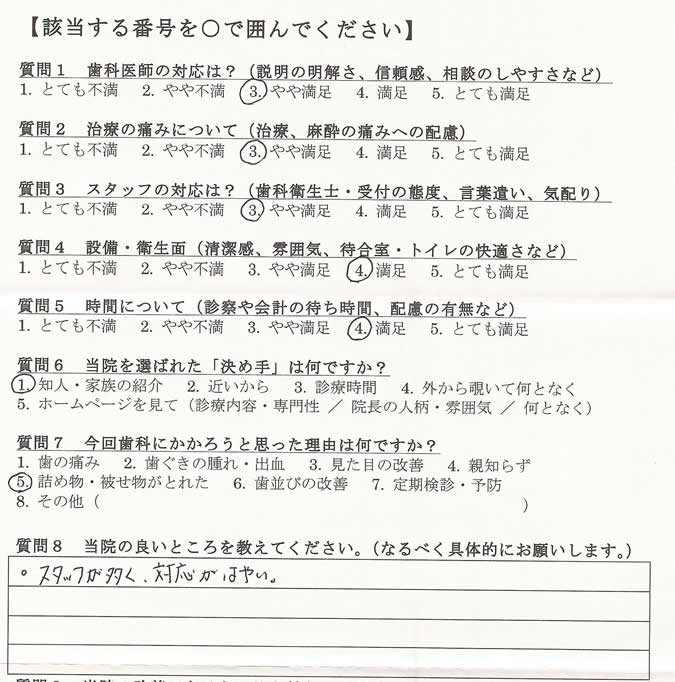 【該当する番号を○で囲んでください】
質問1 歯科医師の対応は？（説明の明解さ、信頼感、相談のしやすさなど）
1. とても不満 2. やや不満 3. やや満足 4. 満足 5. とても満足
質問2 治療の痛みについて（治療、麻酔の痛みへの配慮）
1. とても不満 2. やや不満 3. やや満足 4. 満足 5. とても満足
質問3 スタッフの対応は？（歯科衛生士・受付の態度、言葉遣い、気配り）
1. とても不満 2. やや不満 3. やや満足 4. 満足 5. とても満足
質問4 設備・衛生面（清潔感、雰囲気、待合室・トイレの快適さなど）
1. とても不満 2. やや不満 3. やや満足 4. 満足 5. とても満足
質問5 時間について（診察や会計の待ち時間、配慮の有無など）
1. とても不満 2. やや不満 3. やや満足 4. 満足 5. とても満足
質問6 当院を選ばれた「決め手」は何ですか？
1. 知人・家族の紹介 2. 近いから 3. 診療時間 4. 外から覗いて何となく
5. ホームページを見て（診療内容・専門性 ／ 院長の人柄・雰囲気 ／ 何となく）
質問7 今回歯科にかかろうと思った理由は何ですか？
1. 歯の痛み 2. 歯ぐきの腫れ・出血 3. 見た目の改善 4. 親知らず
5. 詰め物・被せ物がとれた 6. 歯並びの改善 7. 定期検診・予防
8. その他（ ）
質問8 当院の良いところを教えてください。（なるべく具体的にお願いします。）
。スタッフが多く、対応がはやい。